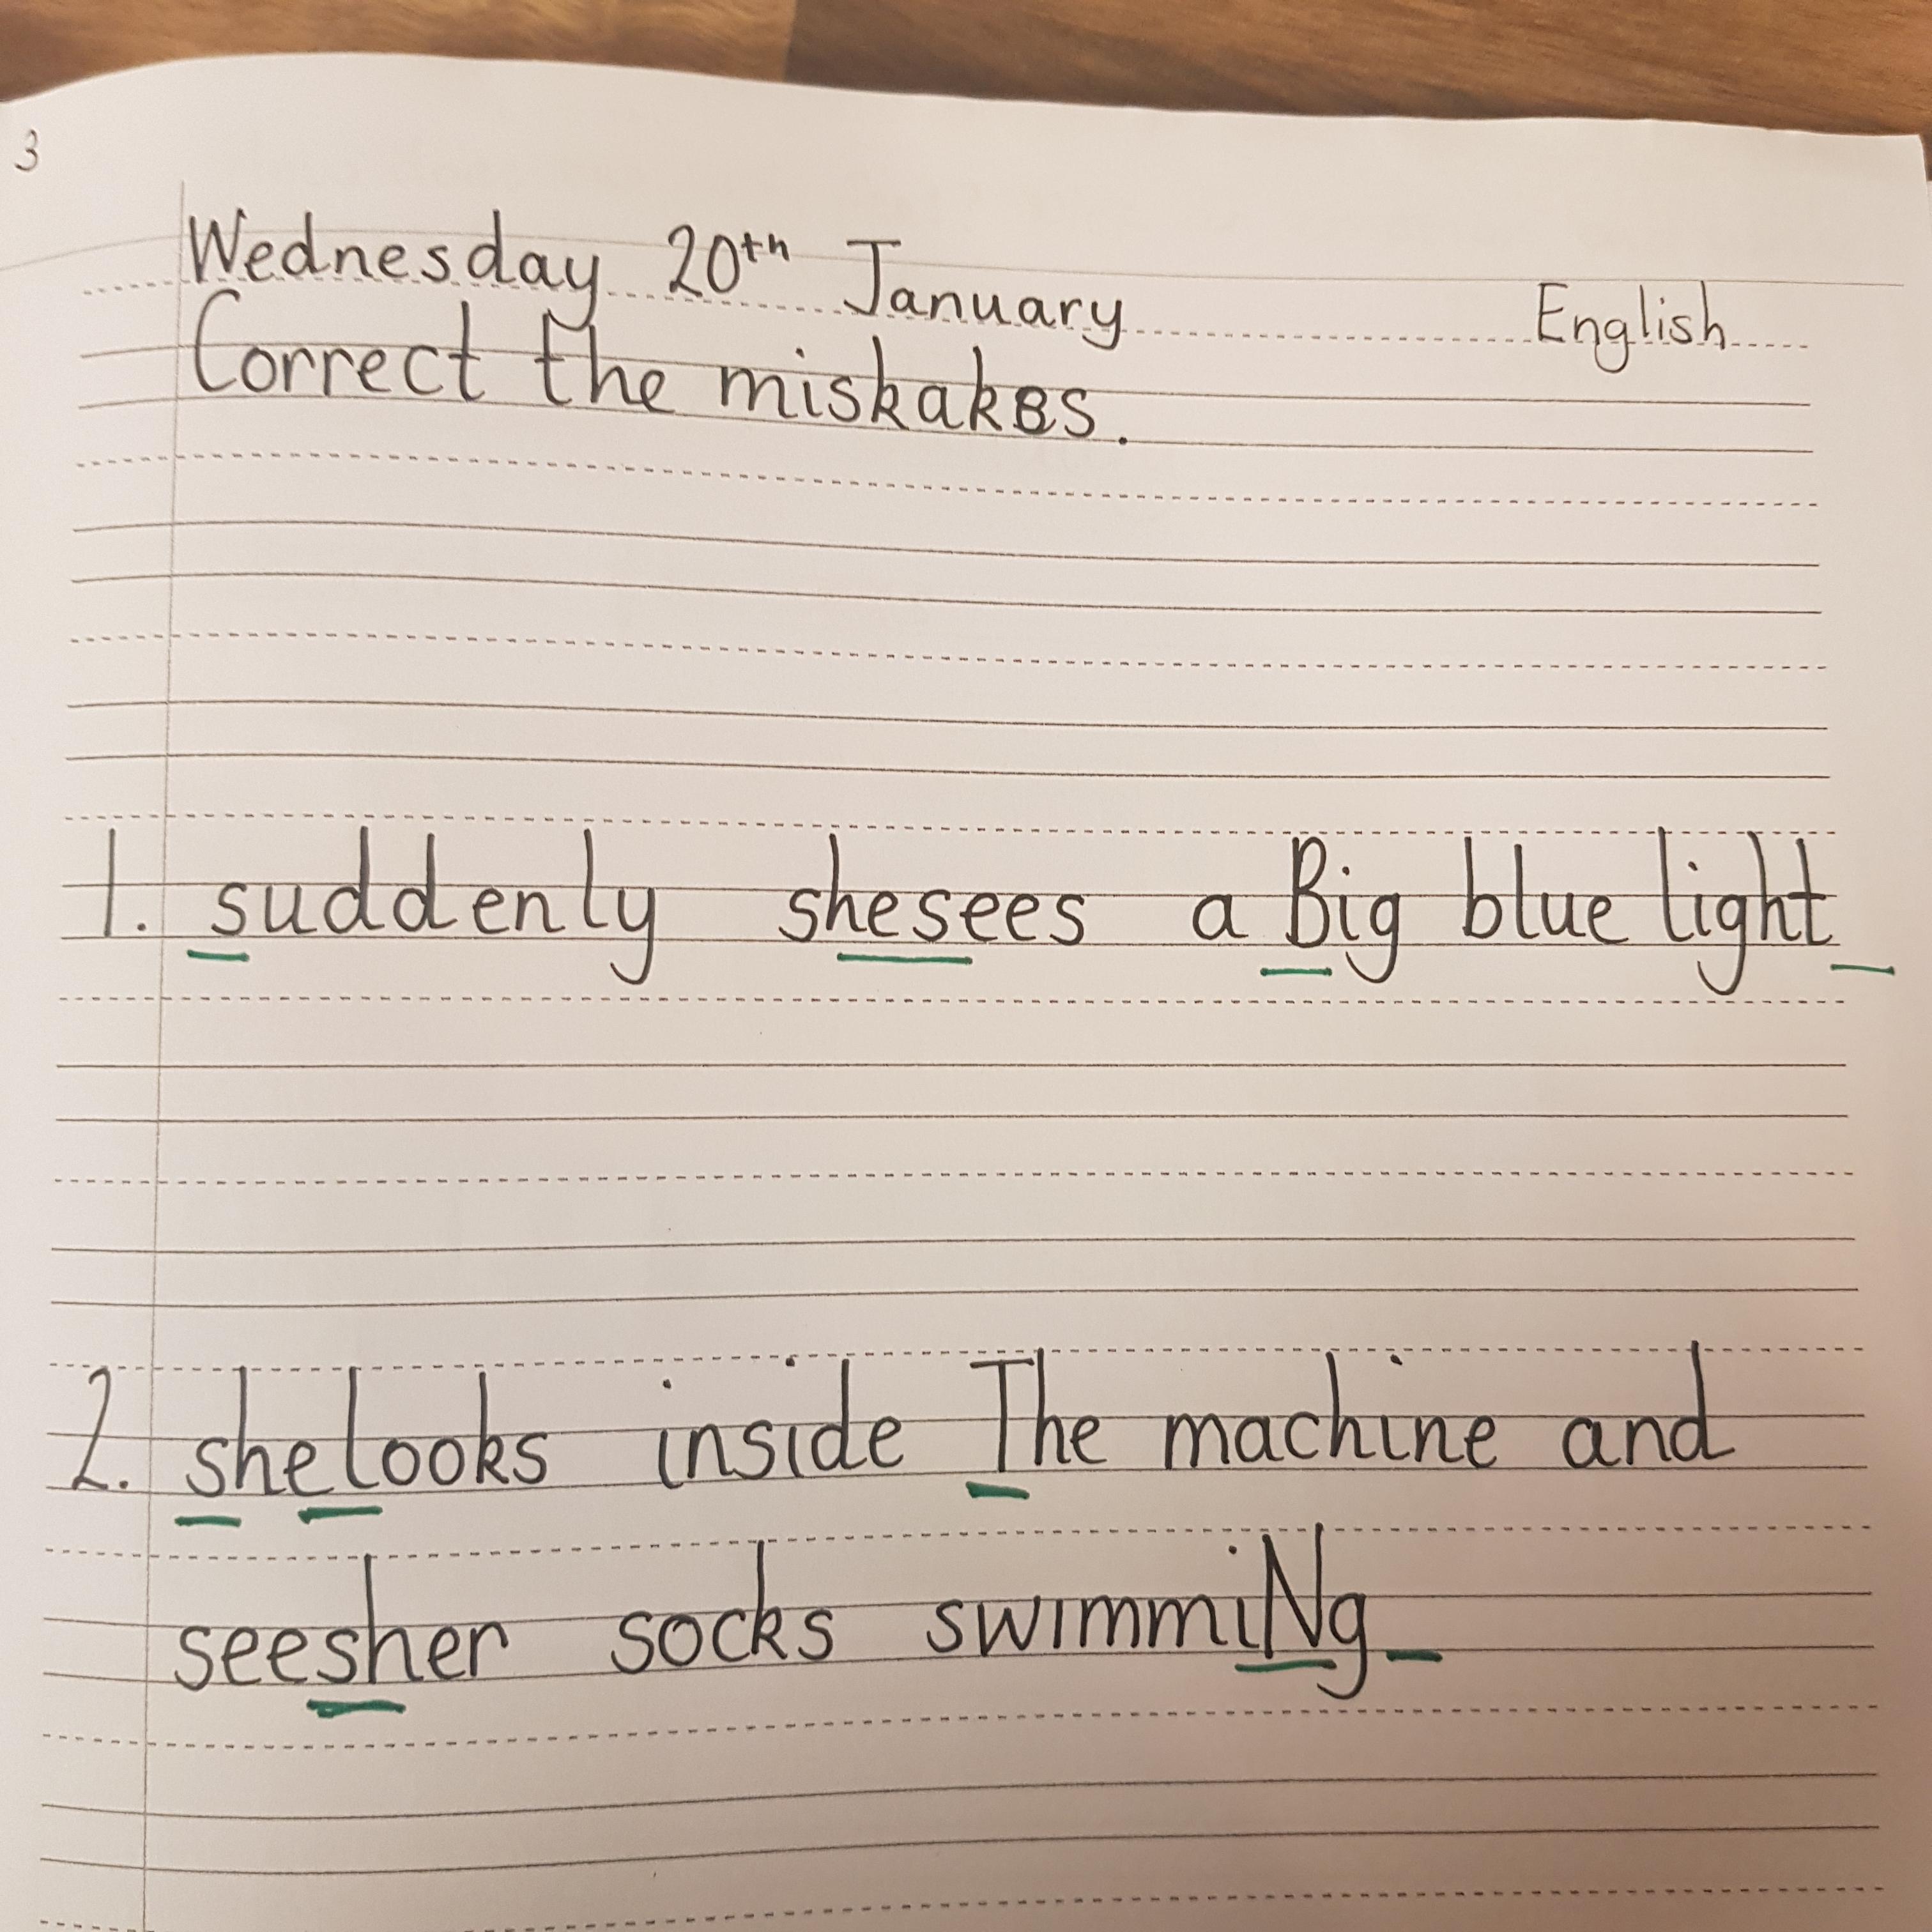 3
Wednesday 20th January English
Correct the miskakes.
1. suddenly shesees a Big blue light
2. shelooks inside The machine and
seesher socks swimmiNg